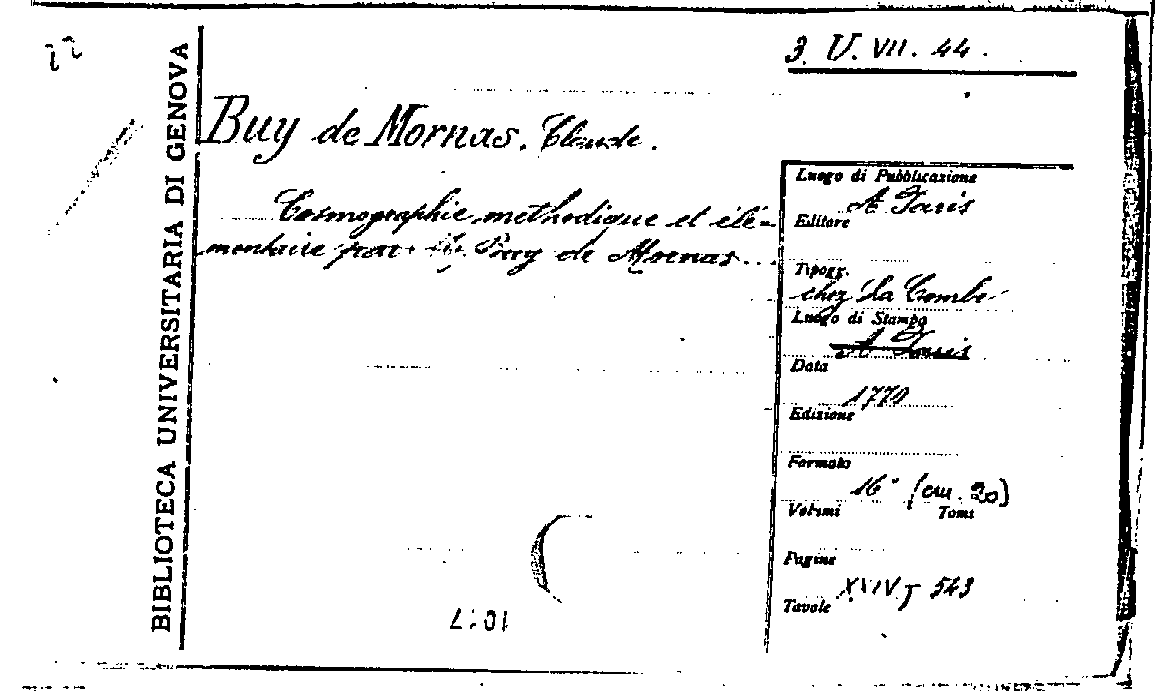 3. U. VII. 44.
BIBLIOTECA UNIVERSITARIA DI GENOVA
Buy de Mornas. Claude.
Cosmographie methodique et élé-
mentaire par M. Buy de Mornas...
Luogo di Pubblicazione
A Paris
Editore
Tipogr.
chez La Combe
Luogo di Stampa
A Paris
Data
1770
Edizione
Formato
16° (cm. 20)
Volumi Tomi
Pagine
543
Tavole